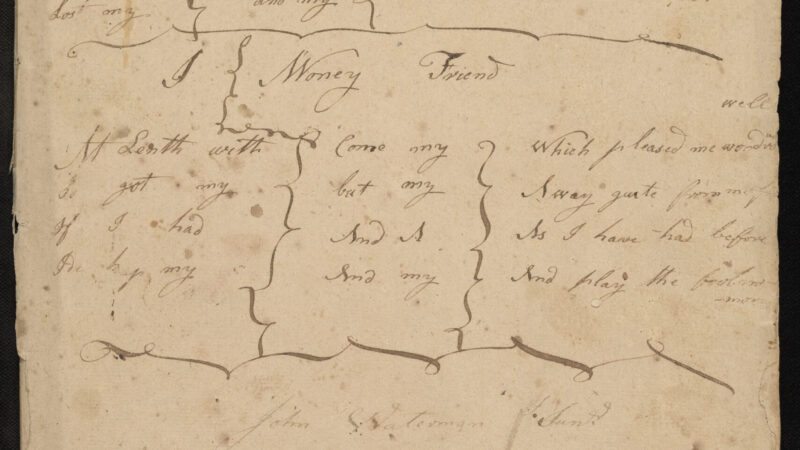 Lost my And my
I Money Friend
well
At Lenth with Come my Which pleased me wondr
I got my but my Away quite from me
If I had And A As I have had before
I'de kep my And my And play the fool no
more
John Waterman Junr